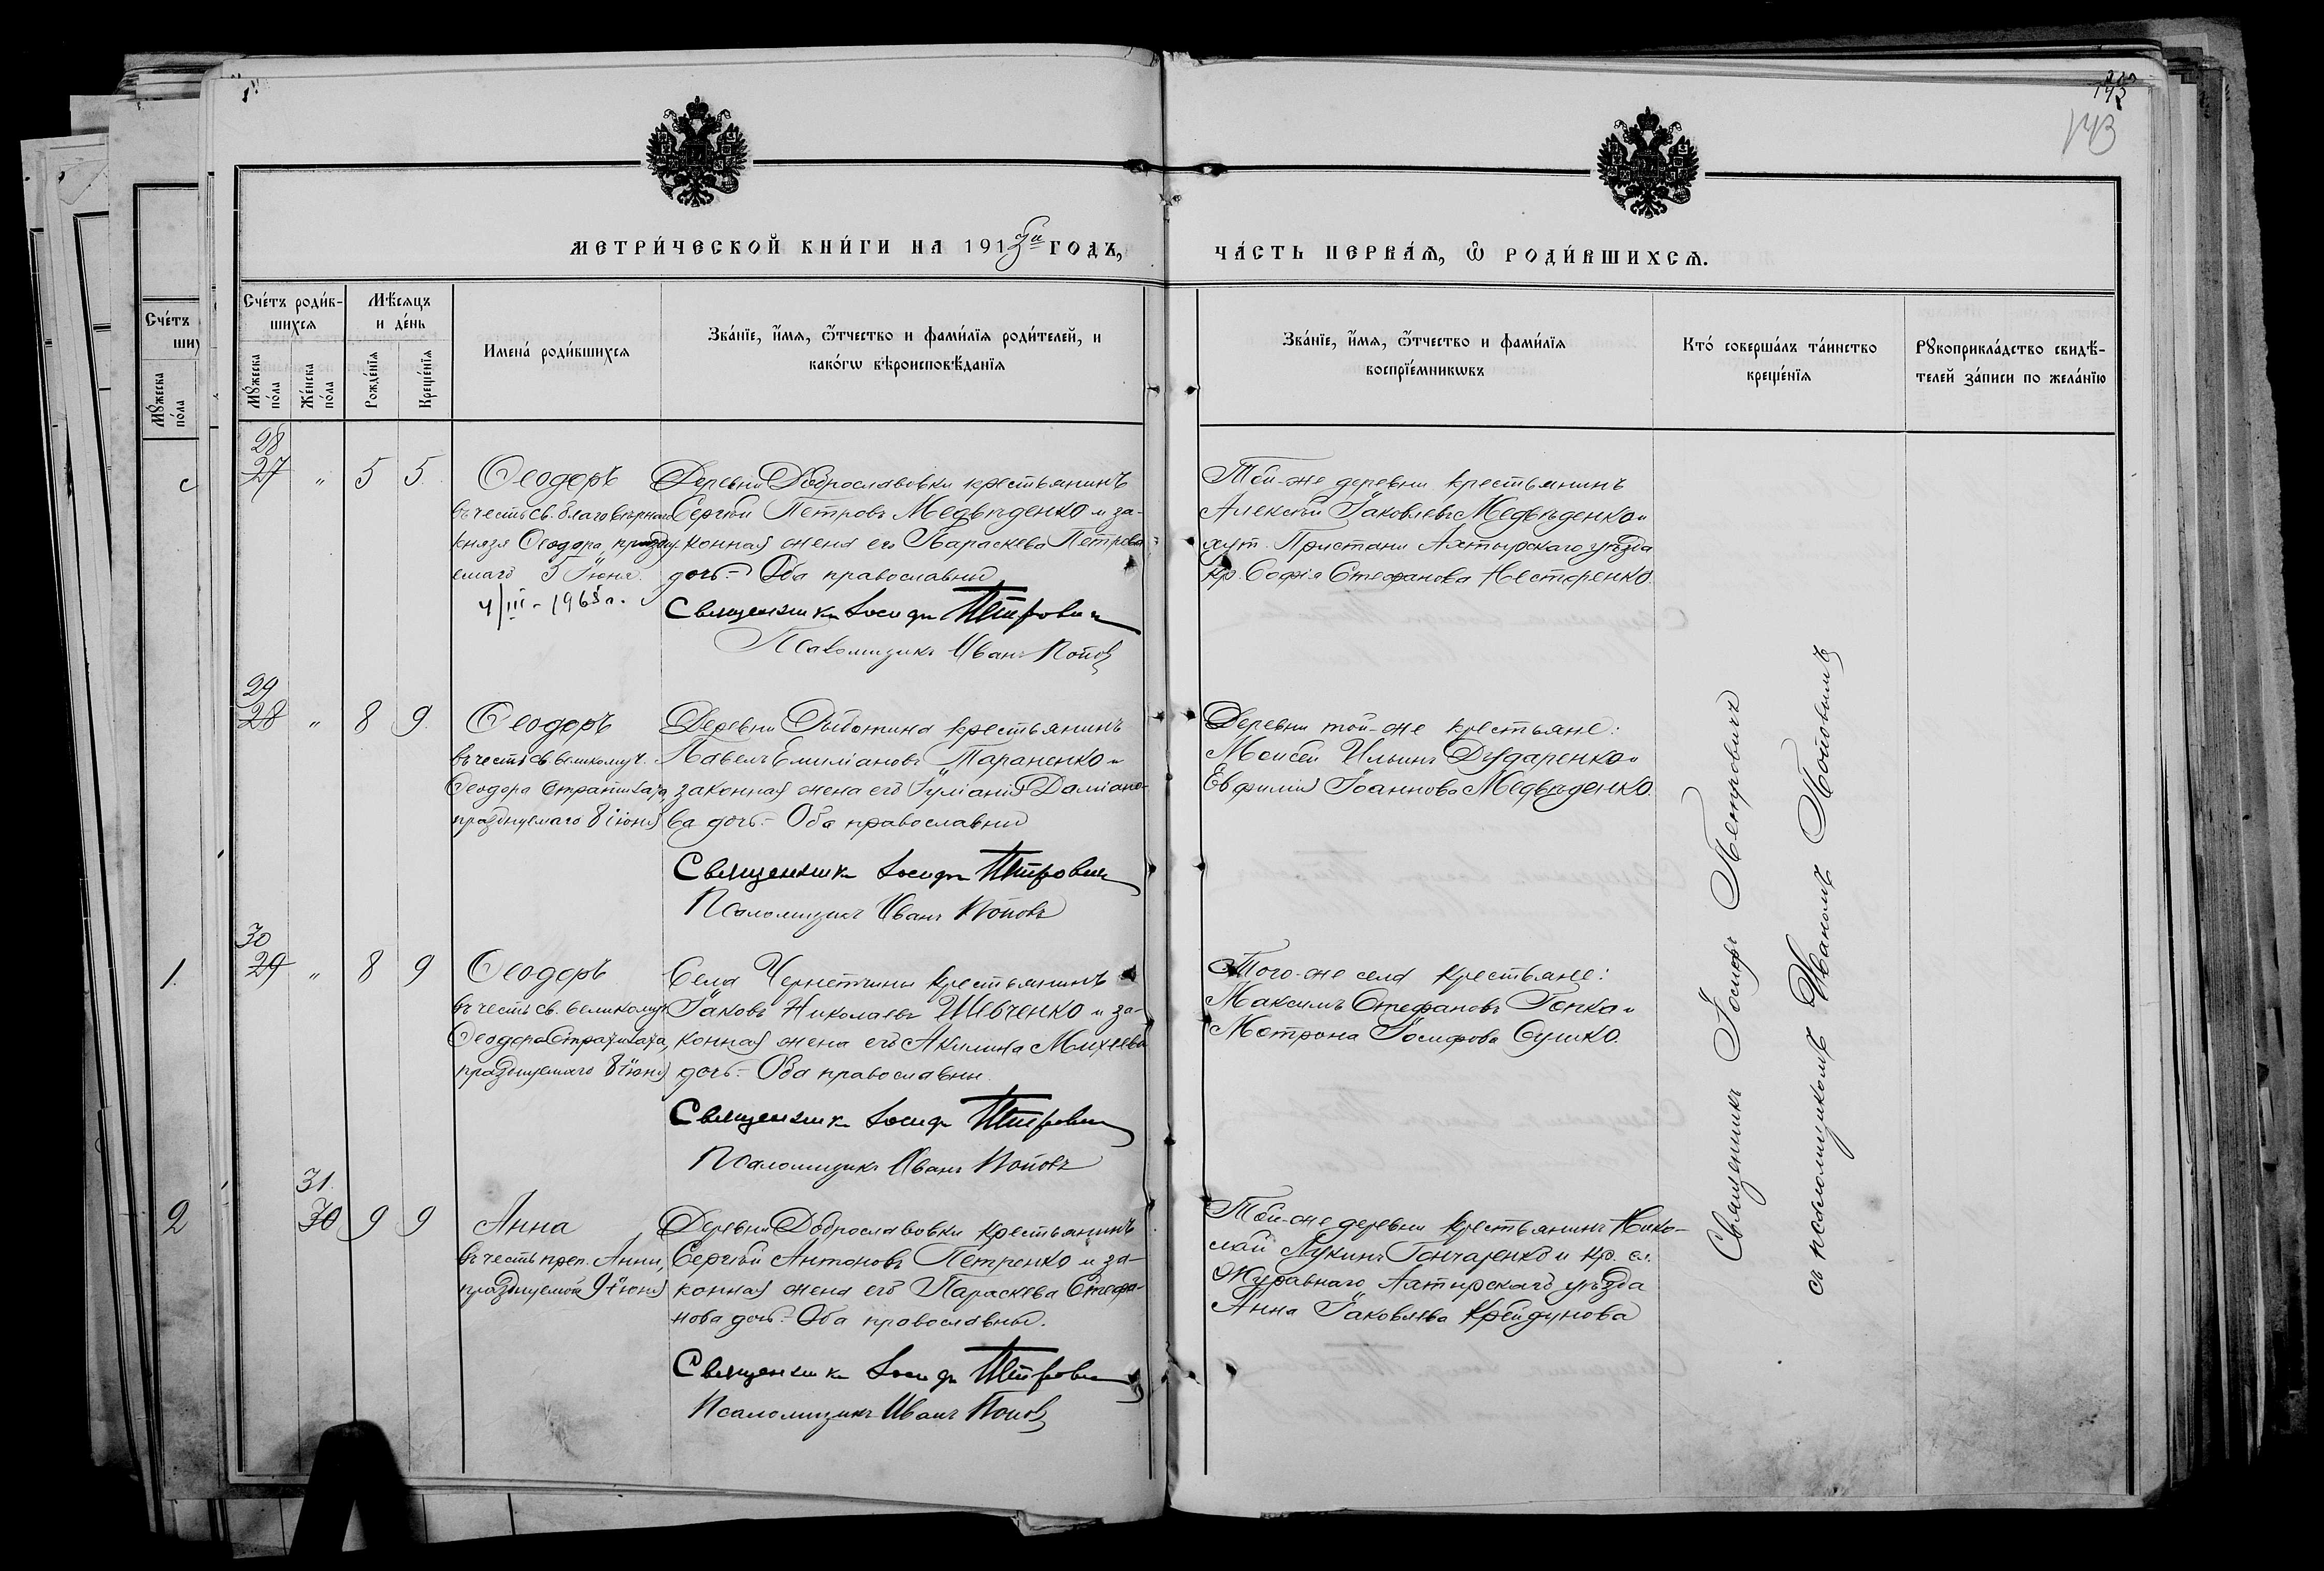 143
МЕТРИ́ЧЕСКОЙ КНИ́ГИ НА 191 ГОДЪ,
ЧА́СТЬ ПЕРВА́Ѧ, Ѽ РОДИ́ВШИХСѦ.
Сче́тъ роди́в-
шихсѧ
Мѣ́сѧцъ
и де́нь
Имена̀ роди́вшихсѧ
Зва́нїе, и҆́мѧ, ѻ҆́тчество и фами́лїѧ роди́телей, и
како́гѡ вѣроисповѣ́данїѧ
Мꙋ́жеска по́ла
Же́нска по́ла
Рожде́нїѧ
Креще́нїѧ
Зва́нїе, и҆́мѧ, ѻ҆́тчество и фами́лїѧ
воспрїе́мникѡвъ
Кто́ соверша́лъ та́инство
креще́нїѧ
Рꙋкоприкла́дство свидѣ́-
телей за́писи по жела́нїю
Сче́тъ
Мꙋ́жеска по́ла
28
27 " 5 5.
Ѳеодоръ
въ честь св. благовѣрнаго
князя Ѳеодора, праздну-
емаго 5 Іюня.
4/III-1965г.
Деревни Доброславовки крестьянинъ
Сергѣй Петровъ Медвѣденко и за-
конная жена его Параскева Петрова
дочь.- Оба православны
Священникъ Іосифъ Петровичъ
Псаломщикъ Иванъ Поповъ
Той-же деревни крестьянинъ
Алексѣй Іаковлевъ Медвѣденко и
хут. Пристани Ахтырскаго уѣзда
кр. Софія Стефанова Нестеренко.
29
28 " 8 9.
Ѳеодоръ
въ честь св. великомуч.
Ѳеодора Стратилата,
празднуемаго 8 іюня
Деревни крестьянинъ
Павелъ Емиліановъ Тараненко и
законная жена его Іуліанія Даміано-
ва дочь.- Оба православны
Священникъ Іосифъ Петровичъ
Псаломщикъ Иванъ Поповъ
Деревни той-же крестьяне:
Моисей Ильинъ Дударенко и
Евфимія Іоаннова Медвѣденко.
1.
30
29 " 8 9
Ѳеодоръ
въ честь св. великомуч.
Ѳеодора Стратилата,
празднуемаго 8 іюня
Села Чернетчины крестьянинъ
Іаковъ Николаевъ Шевченко и за-
конная жена его Акилина Михеева
дочь.- Оба православны.
Священникъ Іосифъ Петровичъ
Псаломщикъ Иванъ Поповъ
Того-же села крестьяне:
Максимъ Стефановъ Гопка и
Матрона Іосифова Сушко.
2
31.
30 9 9
Анна
въ честь преп. Анны,
празднуемой 9 іюня
Деревни Доброславовки крестьянинъ
Сергѣй Антоновъ Петренко и за-
конная жена его Параскева Стефа-
нова дочь.- Оба православны.
Священникъ Іосифъ Петровичъ
Псаломщикъ Иванъ Поповъ
Той-же деревни крестьянинъ Нико-
лай Лукинъ Гончаренко и кр. сл.
Журавнаго, Ахтырскаго уѣзда
Анна Іаковлева Крейдунова
Священникъ Іосифъ Петровичъ
съ псаломщикомъ Иваномъ Поповымъ